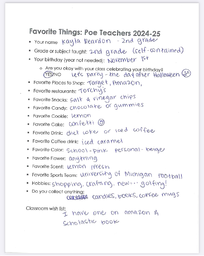 Favorite Things: Poe Teachers 2024-25
• Your name: Kayla Reardon - 2nd grade
• Grade or subject taught: 2nd grade (self-contained)
• Your birthday (year not needed): November 1st
• Are you okay with your class celebrating your birthday?
YES/NO let's party - the day after Halloween
• Favorite Places to Shop: Target, Amazon,
• Favorite restaurants: Torchys
• Favorite Snacks: salt & vinegar chips
• Favorite Candy: chocolate or gummies
• Favorite Cookie: lemon
• Favorite Cake: confetti
• Favorite Drink: diet coke or iced coffee
• Favorite Coffee drink: iced caramel
• Favorite Color: School-pink Personal-beige
• Favorite Flower: anything
• Favorite Scent: lemon/fresh
• Favorite Sports Team: University of Michigan football
• Hobbies: shopping, crafting, golfing!
• Do you collect anything:
candles, books, coffee mugs
Classroom wish list:
I have one on amazon &
scholastic book